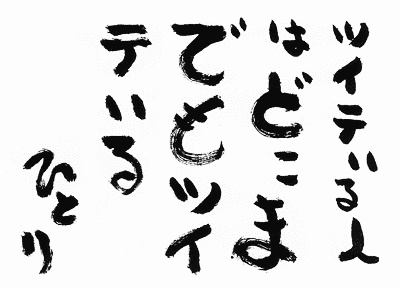 ツイテいる人
はどこま
でもツイ
テいる
ひとり